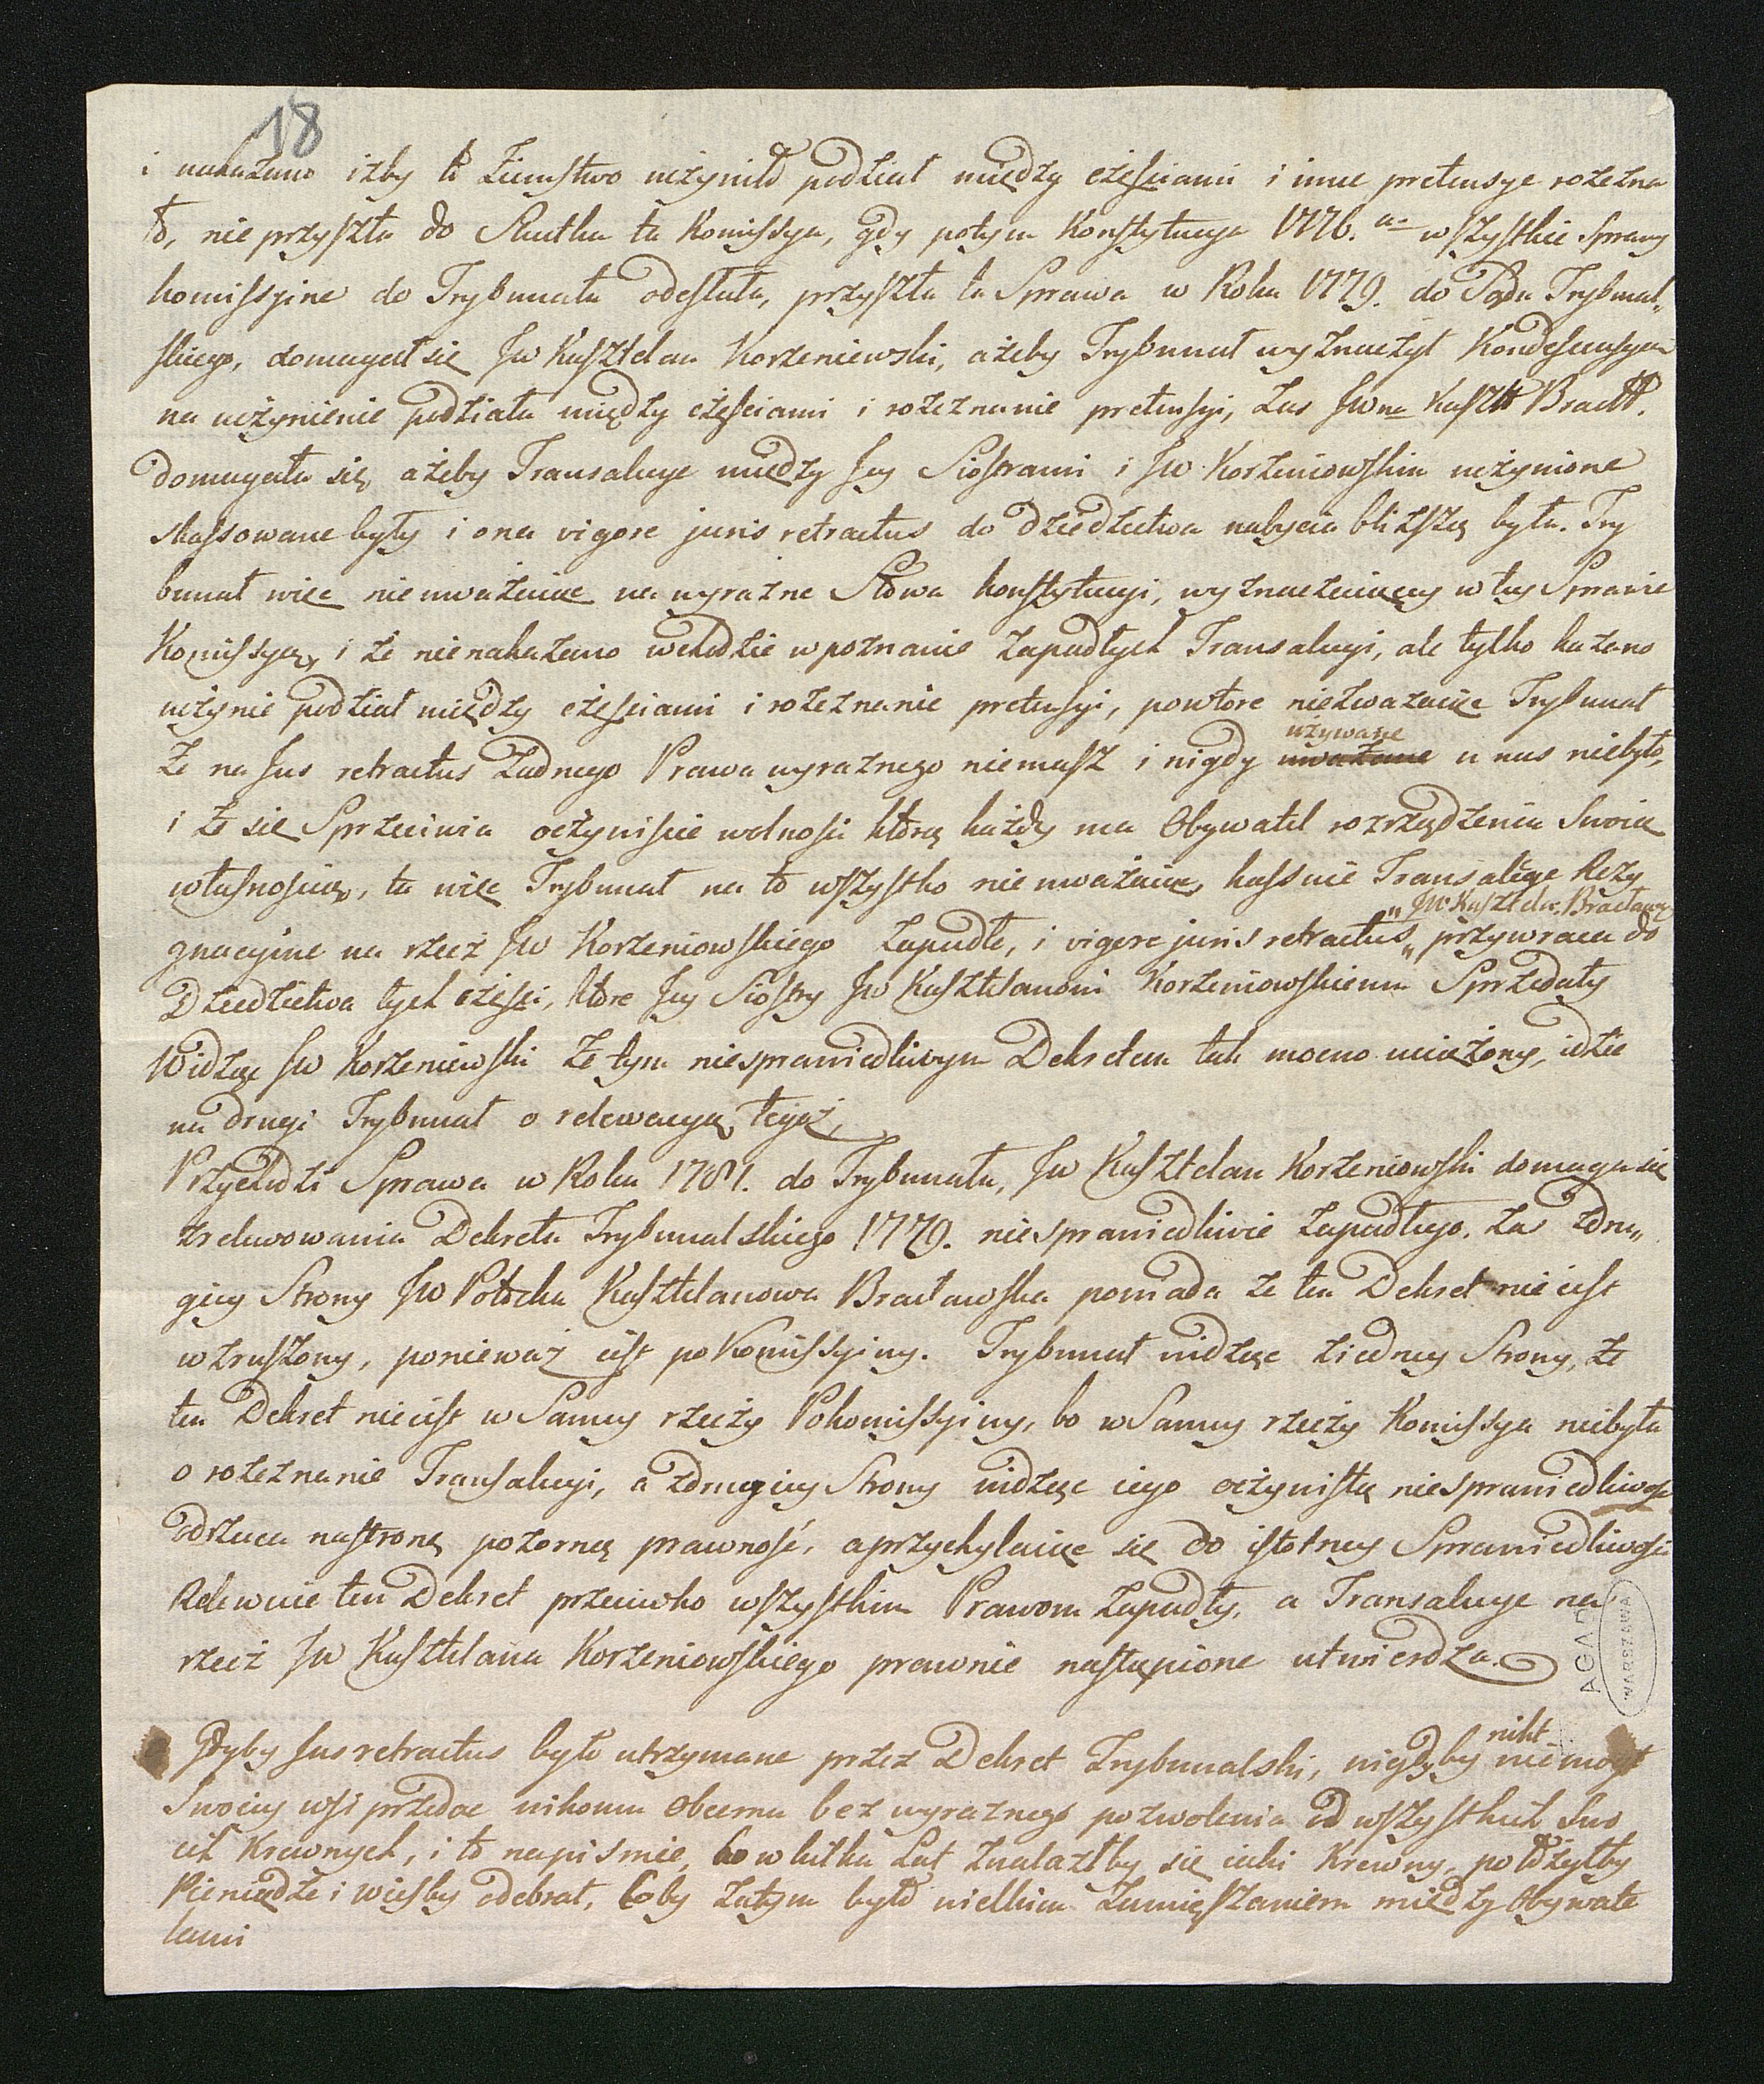 18
i nakazano izby to Ziemstwo uczyniło podział między częściami i inne pretensye rozezna
ło, nie przyszła do Skutku ta Komissya, gdy potym Konstytucya 1776. a wszystkie Sprawy
komissyine do Trybunału odesłała, przyszła ta Sprawa w Roku 1779. do Sądu Trybunal„
skiego, domagał się JW Kasztelan Korzeniewski, ażeby Trybunał wyznaczył Kondescensyą
na uczynienie podziału między częściami i rozeznanie pretensyi, zas JWna Kaszt Bracł.
domagała się, ażeby Transakcye między Jey Siostrami i JW Korzeniowskim uczynione
skassowane były i ona vigore juris retractus do dziedzictwa nabycia bliższą była. Try
bunał więc nieuważaiąc na wyraźne Słowa konstytucyi, wyznaczaiącey w tey Sprawie
Komissyą, i że nienakazano wchodzić w poznanie zapadłych Transakcyi, ale tylko kazano
uczynić podział między częściami i rozeznanie pretensyi, powtore niezważaiąc Trybunał
używane
że na Jus retractus żadnego Prawa wyraznego niemasz i nigdy uważane u nas niebyło,
i że się Sprzeciwia oczywiscie wolnosci którą każdy ma Obywatel rozrządzenia Swoią
własnością, ta więc Trybunał na to wszystko nieuważaiąc, kassuie Transakcye Rezy
„JW Kasztela: Bracławs
gnacyine na rzecz JW Korzeniowskiego zapadłe, i vigore juris retractus„ przywraca do
Dziedzictwa tych części, które Jey Siostry JW Kasztelanowi Korzeniowskiemu Sprzedały
Widząc JW Korzeniewski że tym niesprawiedliwym Dekretem tak mocno uciążony, idzie
na drugi Trybunał o relewacyą tegoż,
Przychodzi Sprawa w Roku 1781. do Trybunału, JW Kasztelan Korzeniowski domaga się
zrelewowania Dekretu Trybunalskiego 1779. niesprawiedliwie zapadłego. za zdru„
giey Strony JW Potocka Kasztelanowa Bracławska powiada że ten Dekret nie iest
wzruszony, ponieważ iest pokomissyiny. Trybunał widząc ziedney Strony, że
ten Dekret nieiest w Samey rzeczy Pokomissyiny, bo w Samey rzeczy Komissya niebyła
o rozeznanie Transakcyi, a zdrugiey Strony widząc iego oczywistą niesprawiedliwość
odrzuca nastronę pozorną prawność, a przychylaiąc się do istotney Sprawiedliwości
Relewuie ten Dekret przeciwko wszystkim Prawom zapadły, a Transakcye na
rzecz JW Kasztelana Korzeniowskiego prawnie nastąpione utwierdza.
AGAD
WARSZAWA
nikt
Gdyby Jus retractus było utrzymane przez Dekret Trybunalski, nigdyby niemógł
Swoiey wsi przedać nikomu obcemu bez wyraznego pozwolenia od wszystkich Swo
ich Krewnych, i to napismie, bo w kilka Lat znalazłby się iaki Krewny, położyłby
Pieniądze i wieśby odebrał, Coby zatym było wielkim zamięszaniem między Obywate
lami